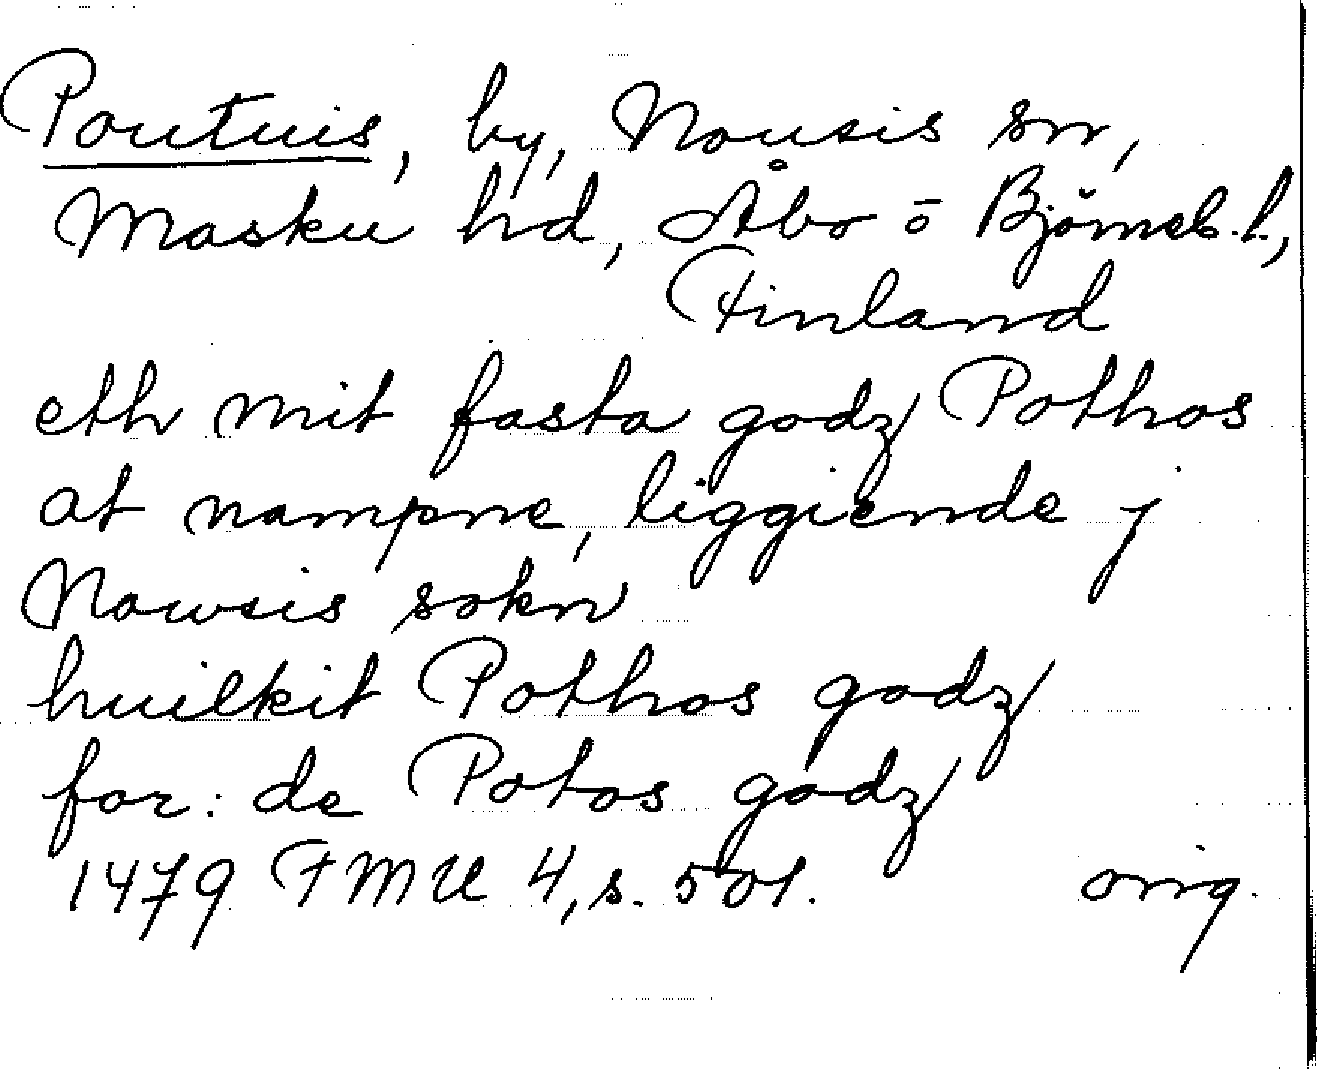 Poutuis, by, Nousis sn,
Masku hd, Åbo o Björneb. l.,
Finland
eth mit fasta godz Pothos
at nampne, liggiende j
Nowsis sokn
huilkit Pothos godz
for: de Potos godz
1479 FMU 4, s. 501. orig.